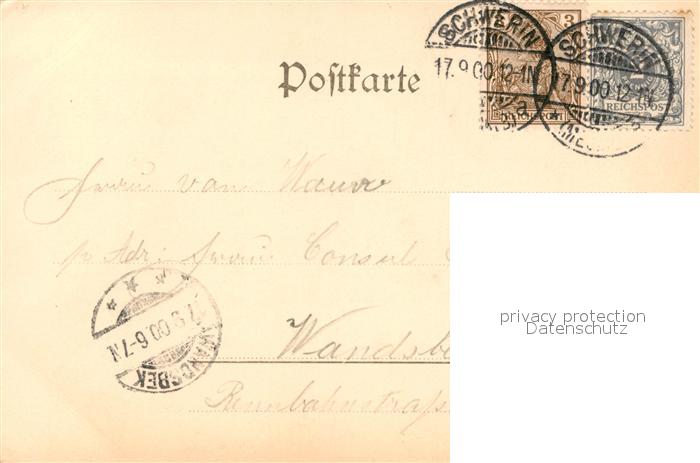 SCHWERIN
17.9.00.12-1N
3
REICHSPOST
SCHWERIN
17.9.00.12-1N
REICHSPOST
Postkarte
Herrn van
Adr: Herrn Consul
Wandsbe
Rennbahnstraß
17.9.00.6-7N.
WANDSBEK
privacy protection
Datenschutz